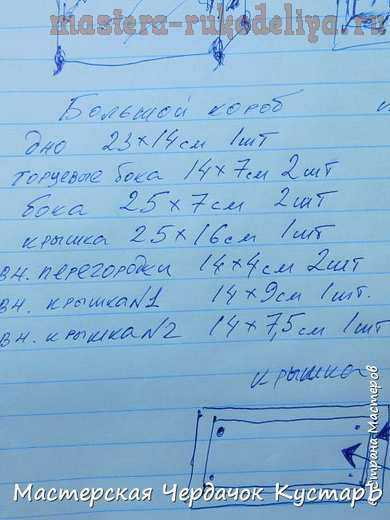 mastera-rukodeliya.ru
Большой короб
дно 23×14см 1шт
торцевые бока 14×7см 2шт
бока 25×7см 2шт
крышка 25×16см 1шт
вн. перегородки 14×4см 2шт
вн. крышка №1 14×9см 1шт.
вн. крышка №2 14×7,5см 1шт
крышка
Страна Мастеров
Мастерская Чердачок Кустарь